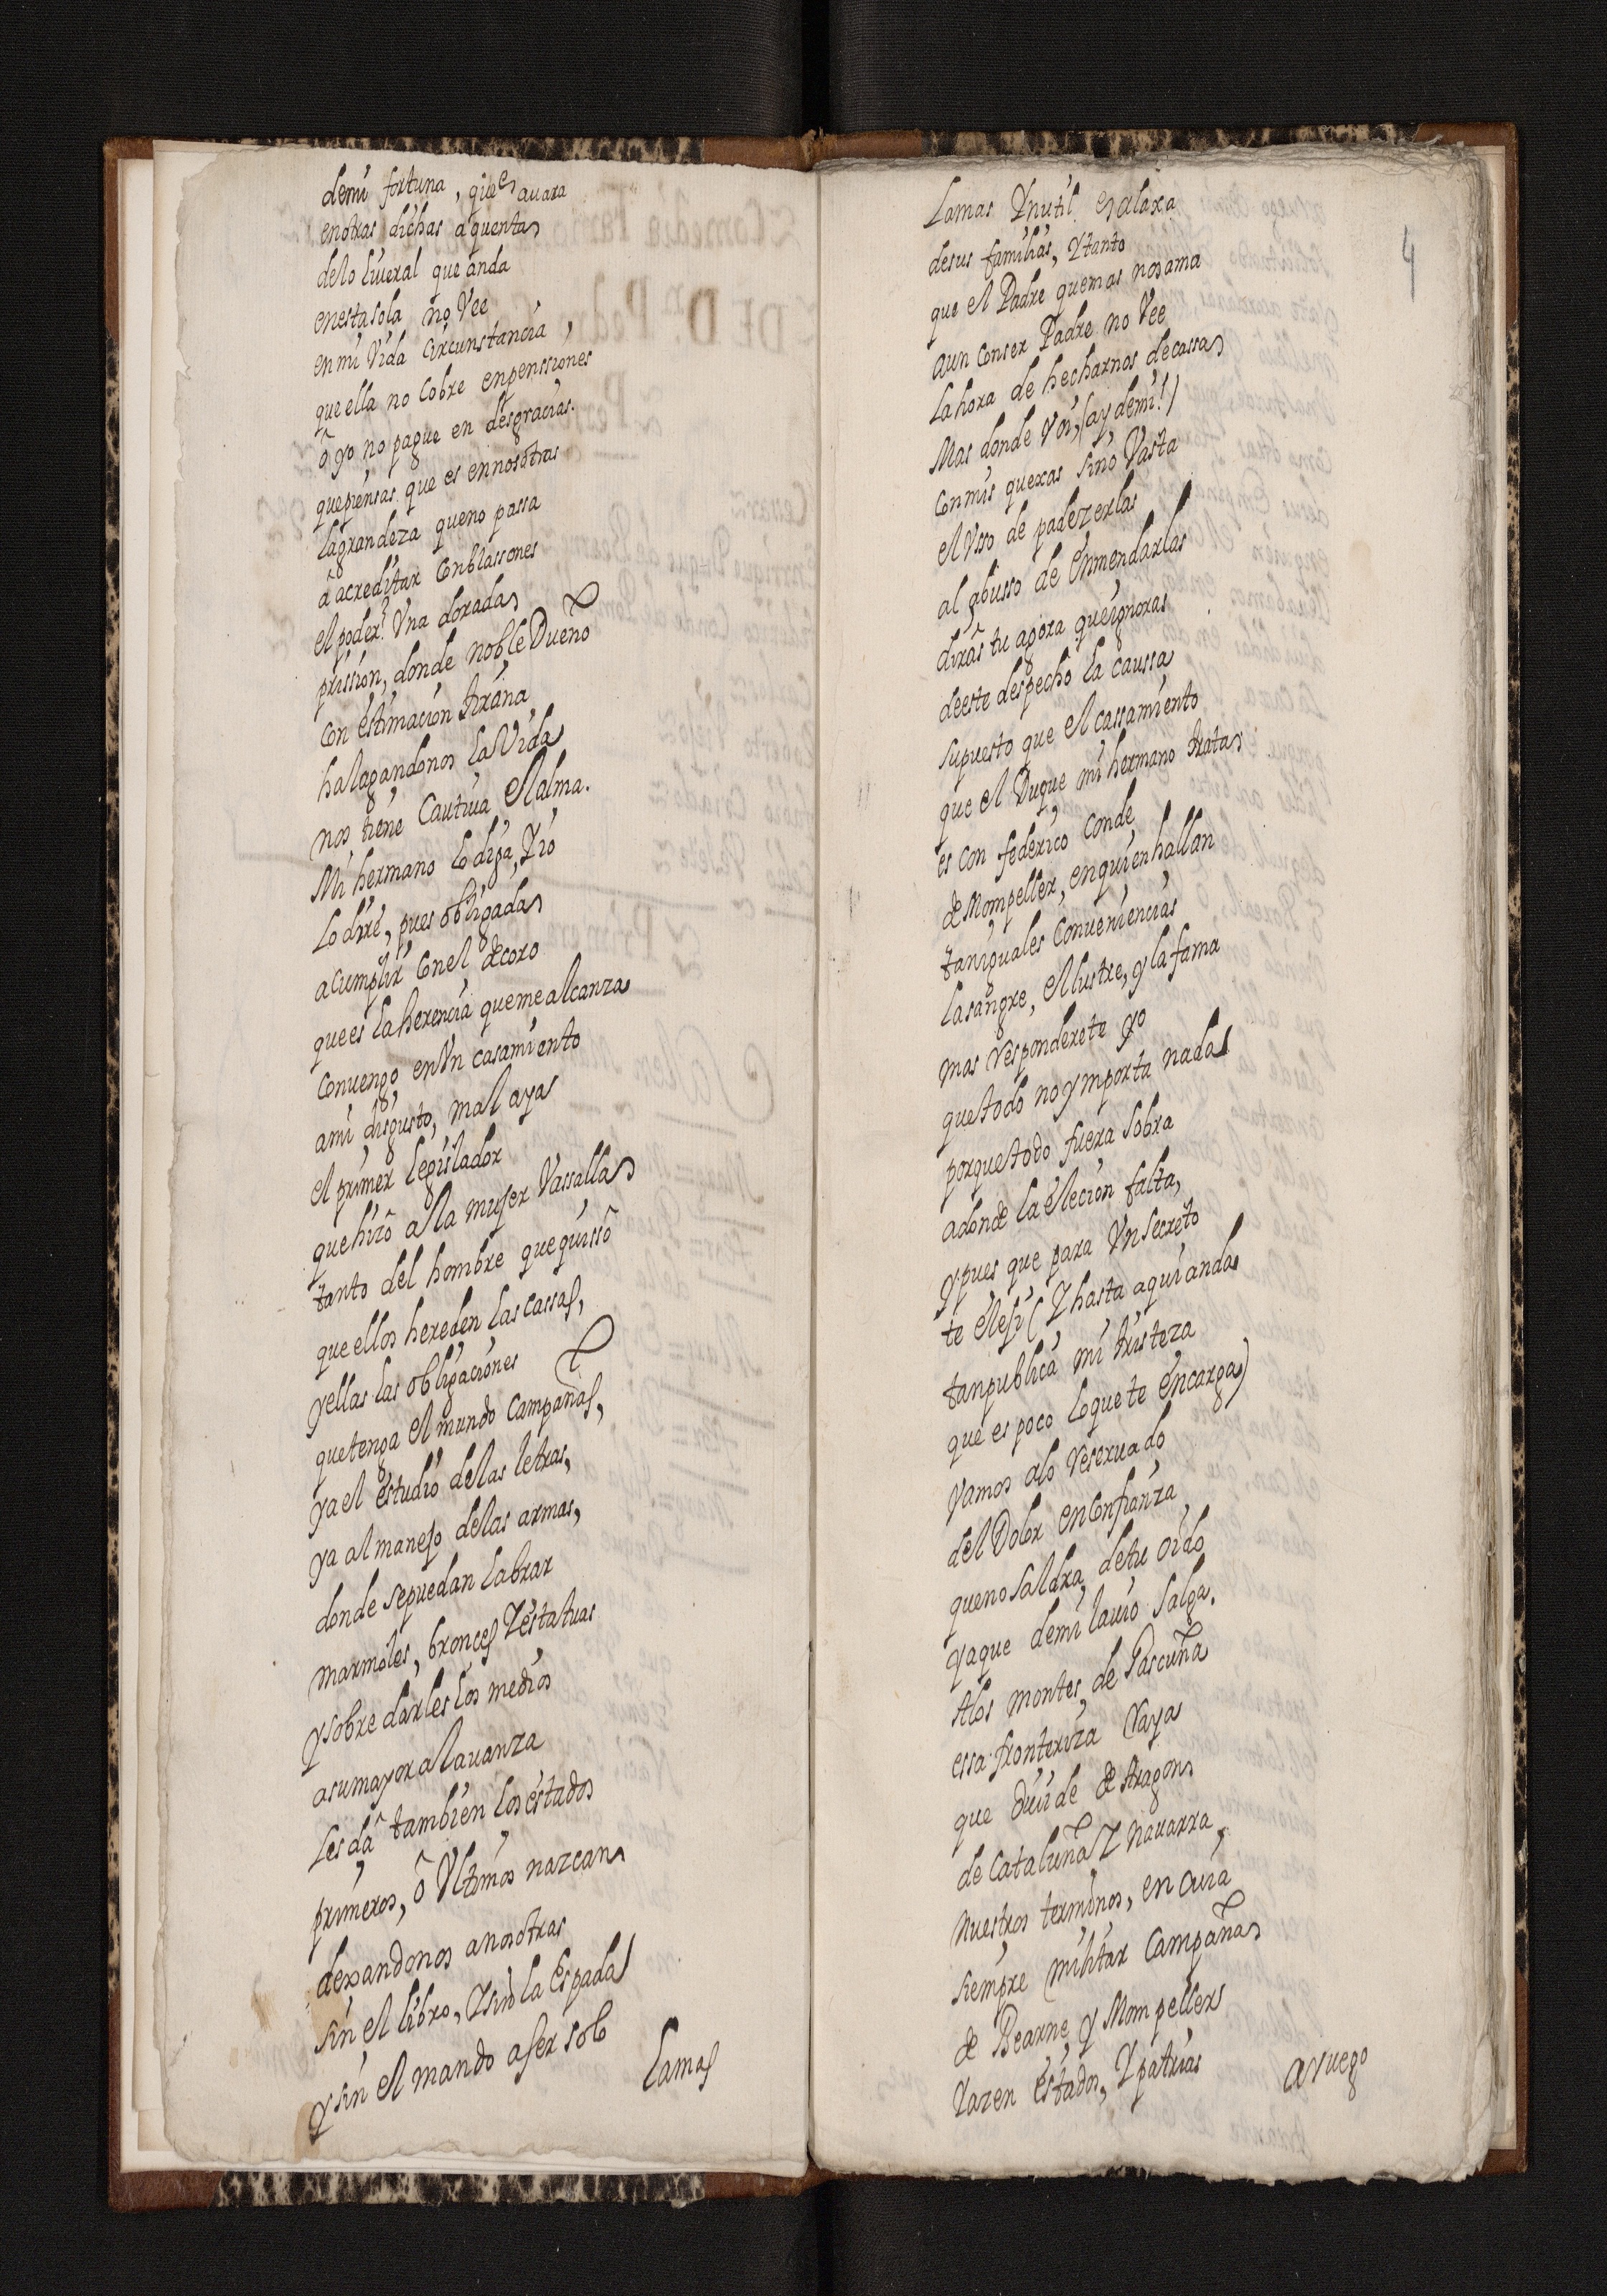 demi fortuna, que es auara
en otras dichas a quentas
delo liueral que anda
enesta sola no Vee
en mi Vida Circunstancia,
que ella no Cobre en penssiones
ô yo no pague en desgracias.
que piensas que es en nosotras
la grandeza queno passa
â acreditar Con blassones
el poder? Vna dorada
prission, donde noble Dueño
Con estimacion tirana
halagandonos la Vida
nos tiene Cautiua el alma.
Mi hermano lo diga, Yio
lo dire, pues obligada
a cumplir Con el decoro
que es la herencia queme alcanza
Conuengo en Vn casamiento
ami disgusto, mal aya
el primer legislador
que hizô ala mujer Vassalla
tanto del hombre que quissô
que ellos hereden las cassas,
yellas las obligaciones
que tenga el mundo Campañas,
ya el estudio delas letras,
ya al manejo delas armas,
donde sepuedan labrar
marmoles, bronces Y estatuas
y sobre darles los medios
asumayor alauanza
les dâ tambien los estados
primeros, ô Vltimos nazcan
dexandonos anosotras
sin el libro, Y sin la Espada
y sin el mando aser solo
lamas
lamas Ynutil alaxa
desus familias, Y tanto
que el Padre quemas nos ama
aun Conser Padre no Vee
la hora de hecharnos de cassa
Mas donde Voi, (ay demi!)
Con mis quexas sino Vasta
el Vsso de padezerlas
al abusso de enmendarlas
dirâs tu agora que ignoras
deeste despecho la caussa
supuesto que el cassamiento
que el Duque mi hermano trata
es con federico Conde
de Mompeller, en quien hallan
tan iguales Conueniencias
la sangre, el lustre, y la fama
mas responderete yo
que todo no ymporta nada
porque todo fuera Sobra
adonde la elecion falta,
y pues que para Vn Secreto
te elesi (Y hasta aqui anda
tan publica mi tristeza
que es poco lo que te encarga)
vamos alo reseruado
del Dolor en Confianza
queno Saldra de tu oido
ya que demi lauio Salga.
Alos montes de Gascuña
essa fronteriza Raya
que diuide de Aragon
de Cataluña Y Nauarra
nuestros terminos, en cuia
siempre militar Campaña
de Bearne, y Mompeller
Yazen estados, Y patrias
a ruego
4